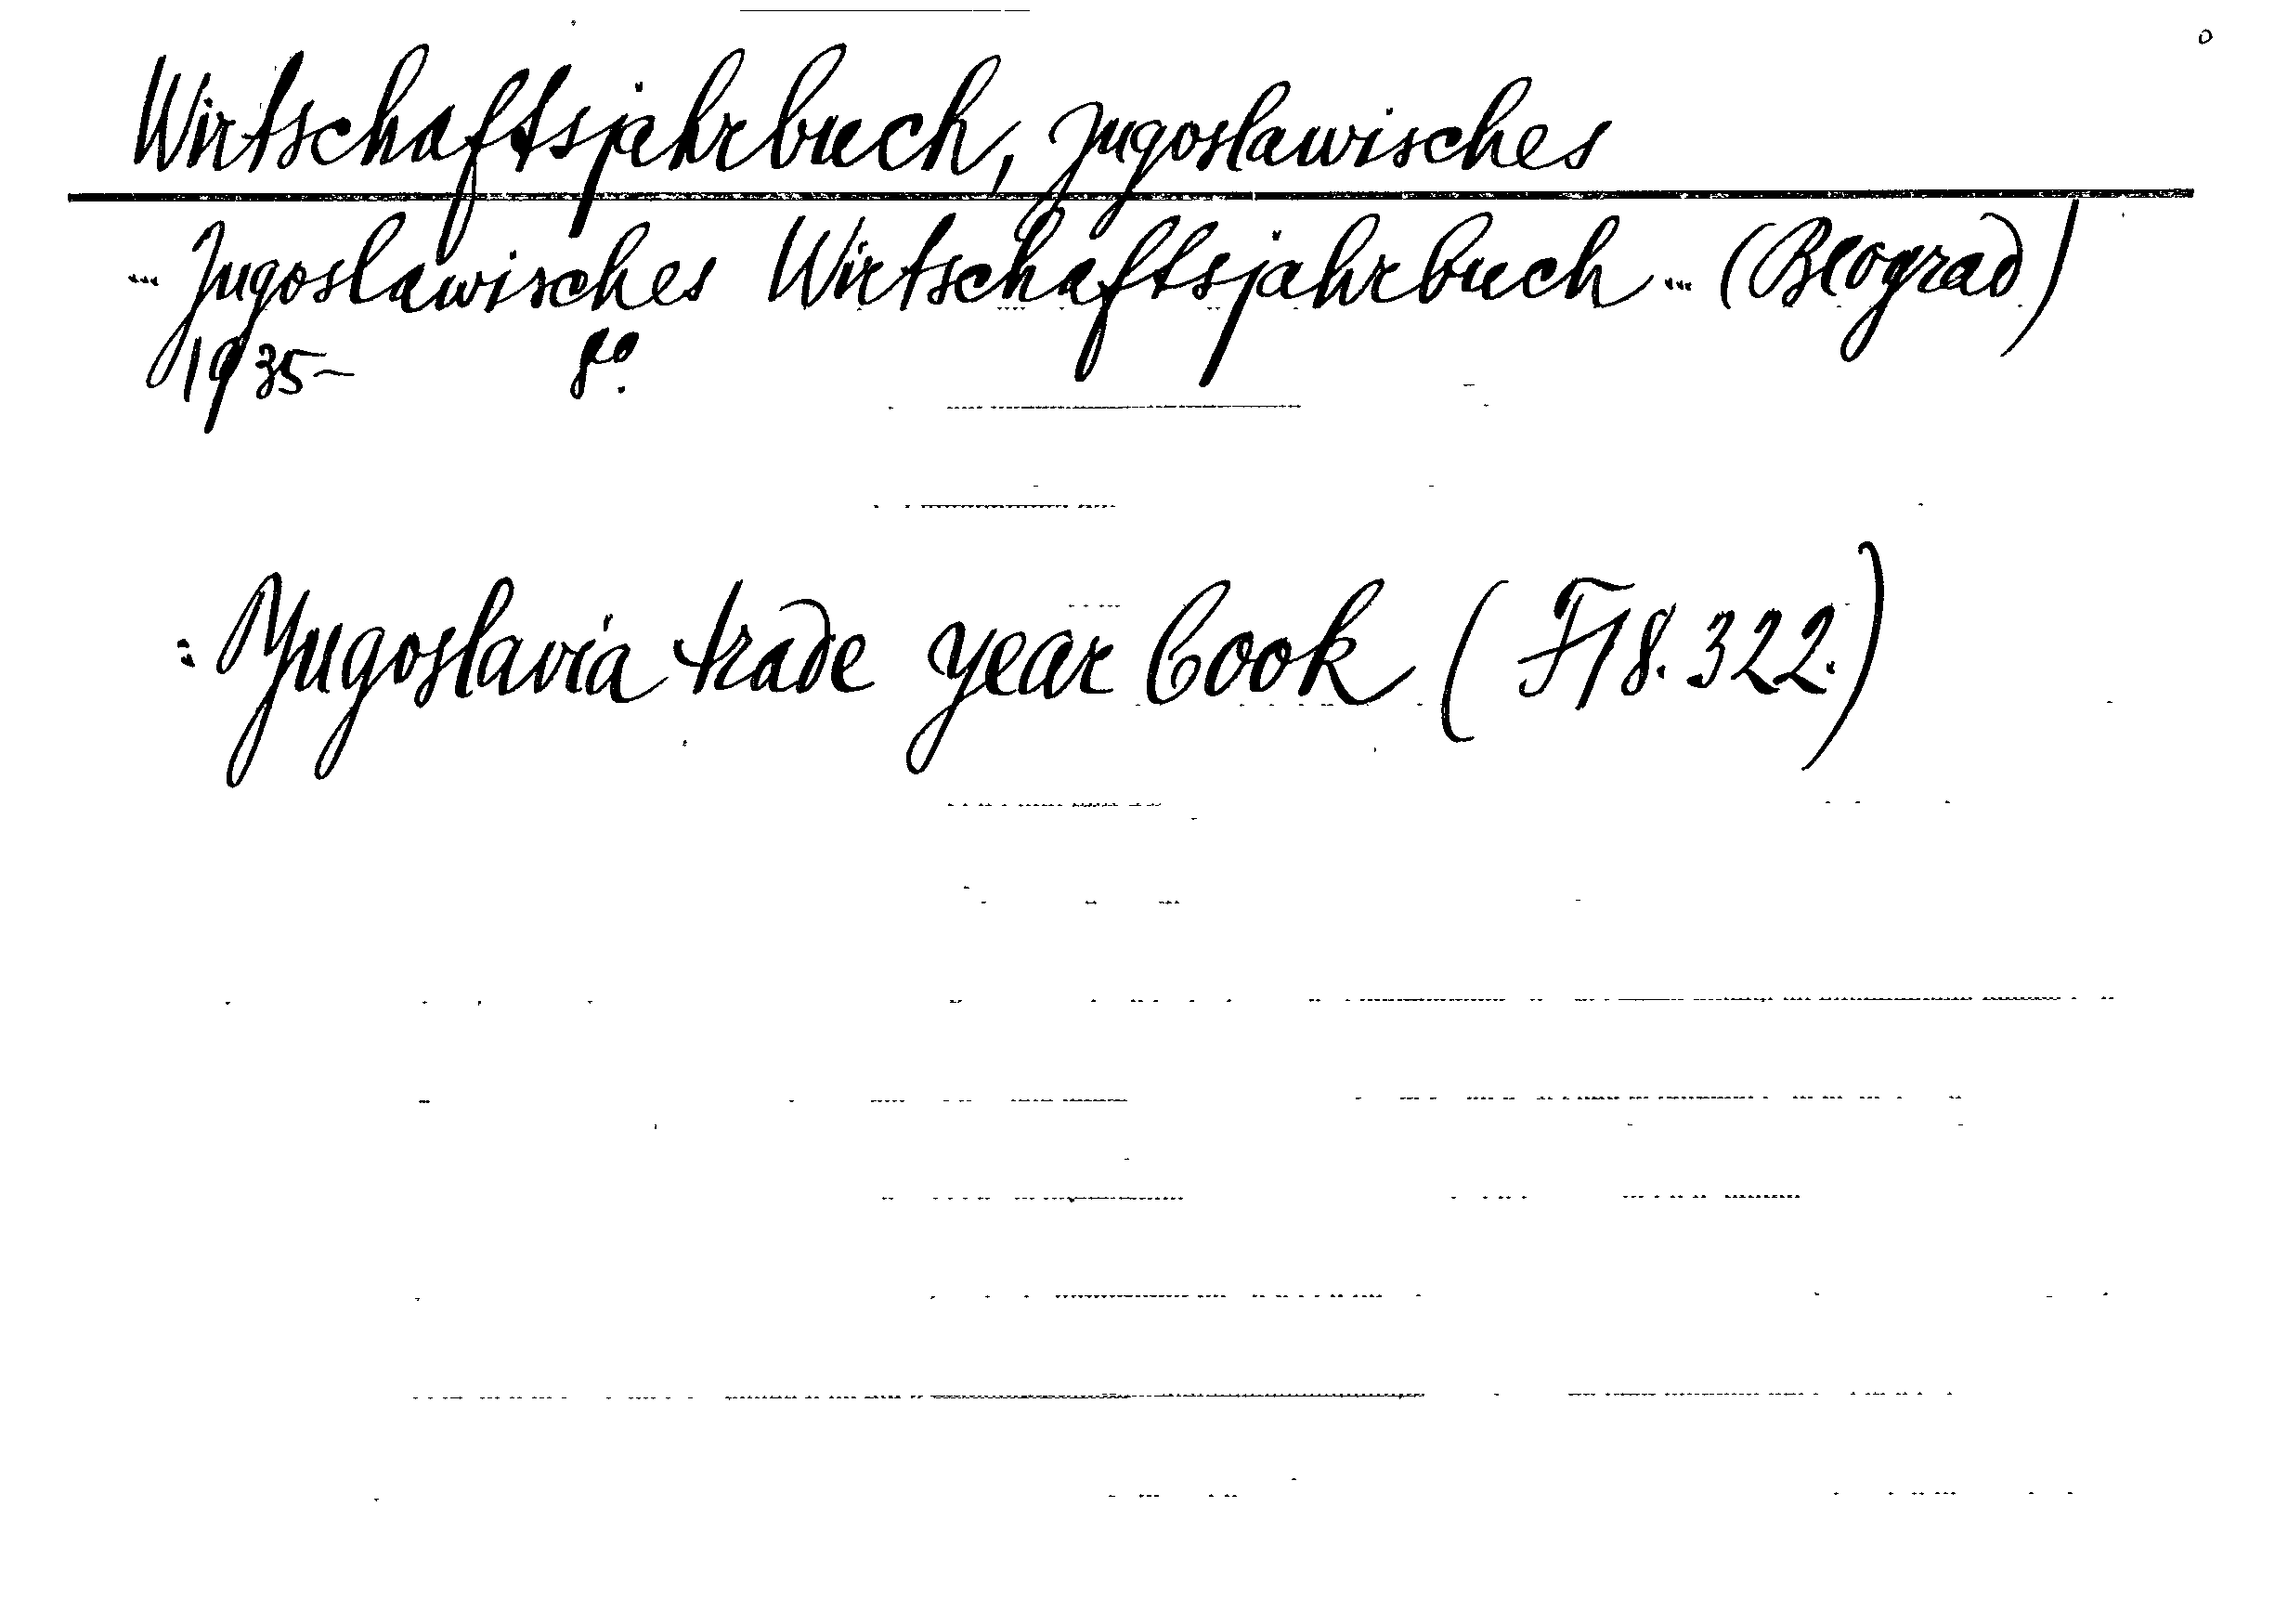 Wirtschaftsjahrbuch, Jugoslawisches
... Jugoslawisches Wirtschaftsjahrbuch ... (Beograd)
1935- 8°.
: Yugoslavia trade year book (F18.322.)